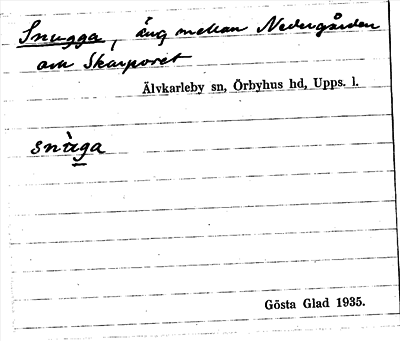 Snugga, äng mellan Nedergården
och Skarporet
Älvkarleby sn, Örbyhus hd, Upps. l.
snùga
Gösta Glad 1935.